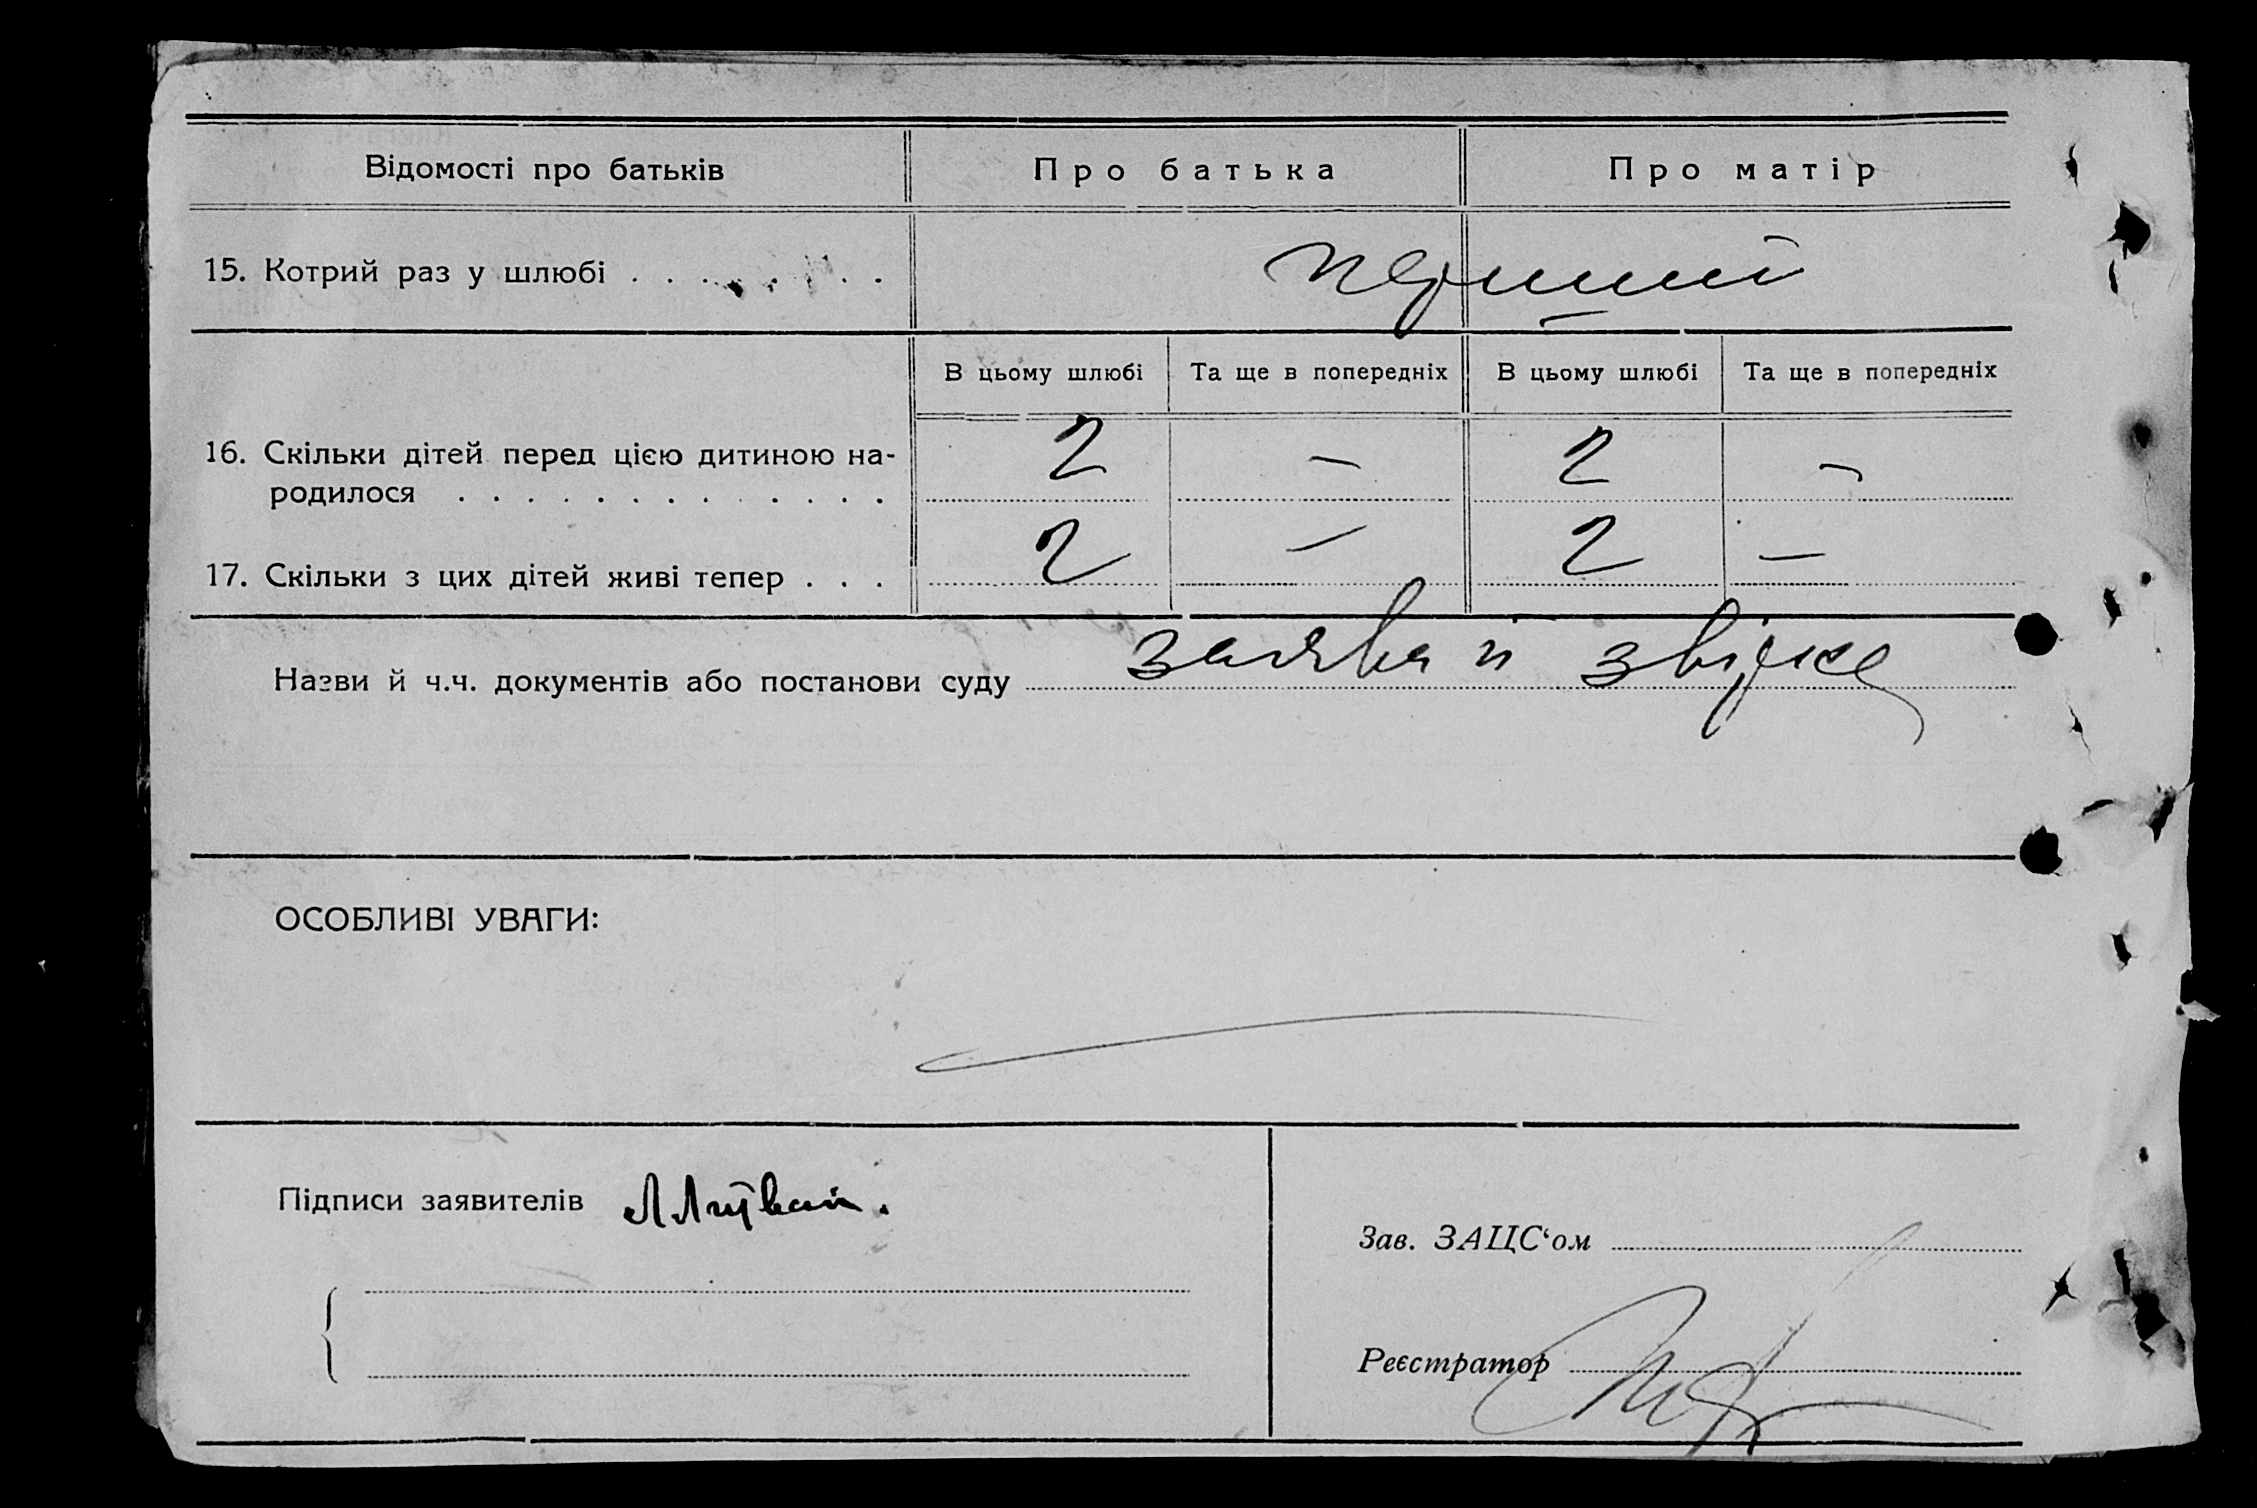 Відомості про батьків Про батька Про матір
15. Котрий раз у шлюбі . . . . . . . . перший
В цьому шлюбі Та ще в попередніх В цьому шлюбі Та ще в попередніх
16. Скільки дітей перед цією дитиною на- 2 — 2 —
родилося . . . . . . . . . . . . .
17. Скільки з цих дітей живі тепер . . . 2 — 2 —
Назви й ч.ч. документів або постанови суду заява й
ОСОБЛИВІ УВАГИ:
Підписи заявителів
Зав. ЗАЦС‘ом
Реєстратор